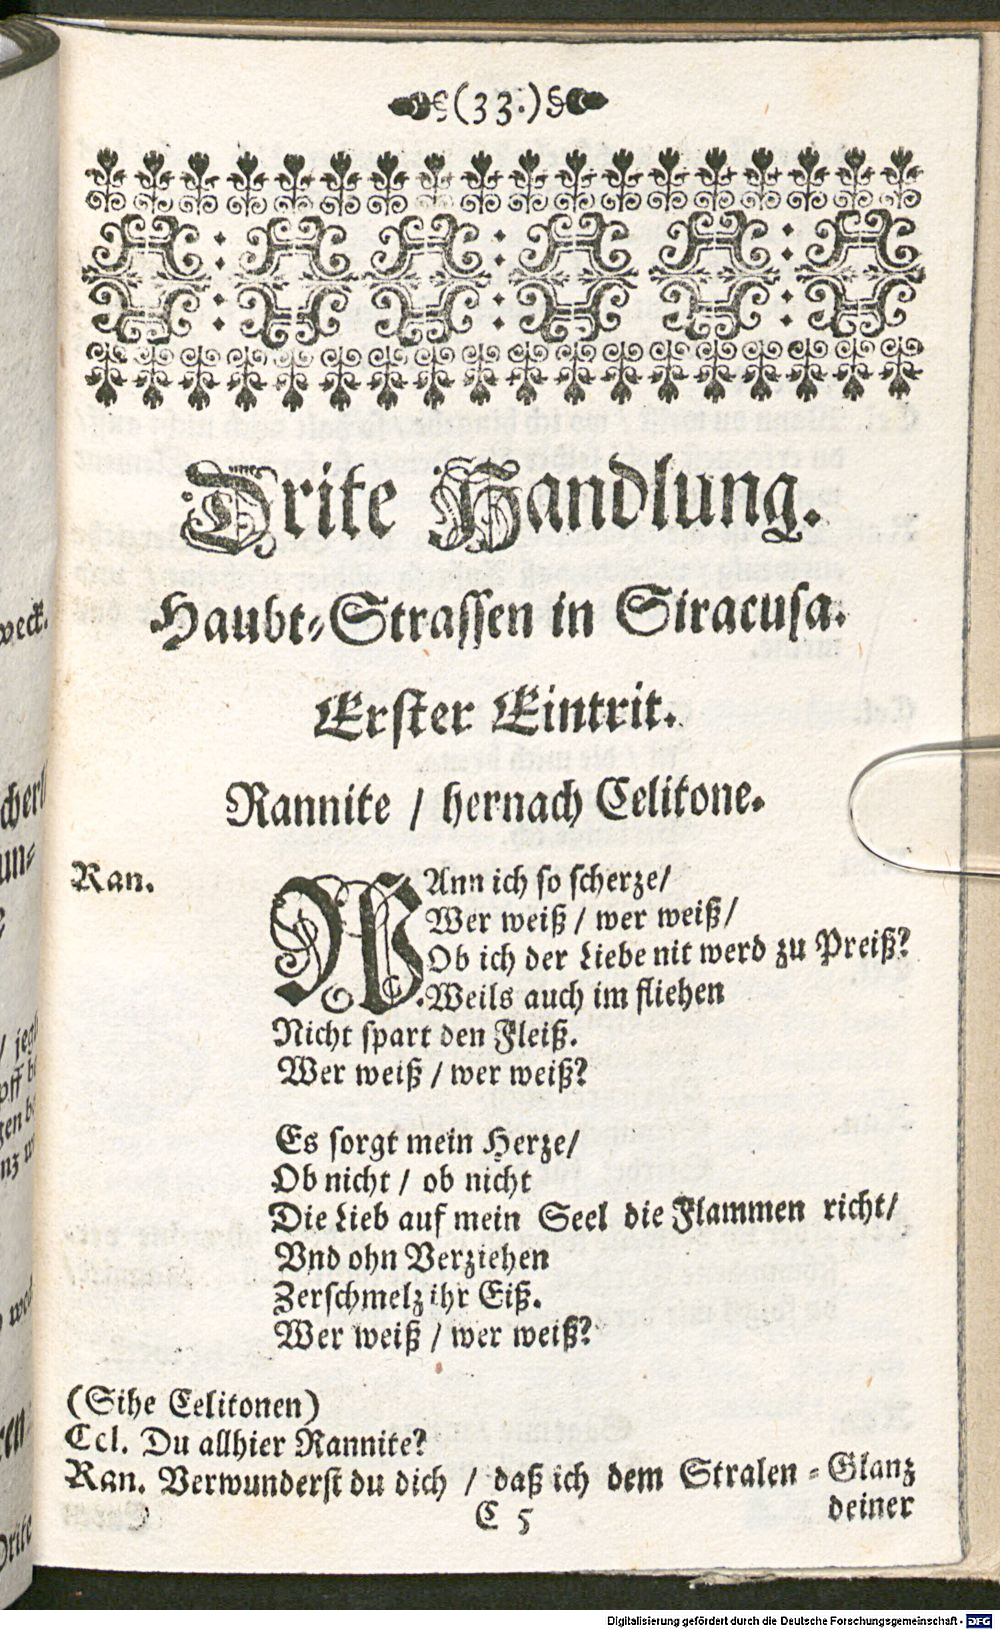 (33.)
Drite Handlung.
Haubt-Strassen in Siracusa.
Erster Eintrit.
Rannite / hernach Celitone.
Ran. WAnn ich so scherze/
Wer weiß / wer weiß/
Ob ich der Liebe nit werd zu Preiß?
Weils auch im fliehen
Nicht spart den Fleiß.
Wer weiß / wer weiß?
Es sorgt mein Herze/
Ob nicht / ob nicht
Die Lieb auf mein Seel die Flammen richt/
Vnd ohn Verziehen
Zerschmelz ihr Eiß.
Wer weiß / wer weiß?
(Sihe Celitonen)
Cel. Du allhier Rannite?
Ran. Verwunderst du dich / daß ich dem Stralen-Glanz
C 5 deiner
weck.
Digitalisierung gefördert durch die Deutsche Forschungsgemeinschaft - DFG